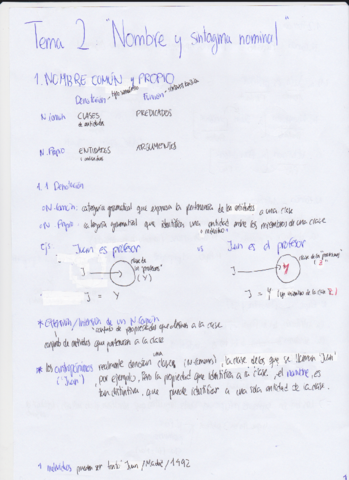 Tema 2: "Nombre y sintagma nominal"
1. NOMBRE COMÚN y PROPIO
Denotación Función
N. común CLASES PREDICADOS
de entidades
N. Propio ENTIDADES ARGUMENTOS
1.1 Denotación
N. común: categoría gramatical que expresa la pertenencia de las entidades a una clase
N. Propio: categoría gramatical que identifica una entidad entre los miembros de una clase
Ejs: Juan es profesor vs Juan es el profesor
J clase de los "profesores" (Y) J Y clase de los "profesores"
J = Y J = Y
* Extensión/Intensión de un N. común
conjunto de propiedades que definen a la clase
conjunto de entidades que pertenecen a la clase
* Los antropónimos realmente denotan una clase, la clase de los que se llaman "Juan"
("Juan"), por ejemplo, pero la propiedad que identifica a la clase, el nombre, es
tan distintiva, que puede identificar a una sola entidad de la clase.
* individuos pueden ser tanto Juan/Madrid/1492